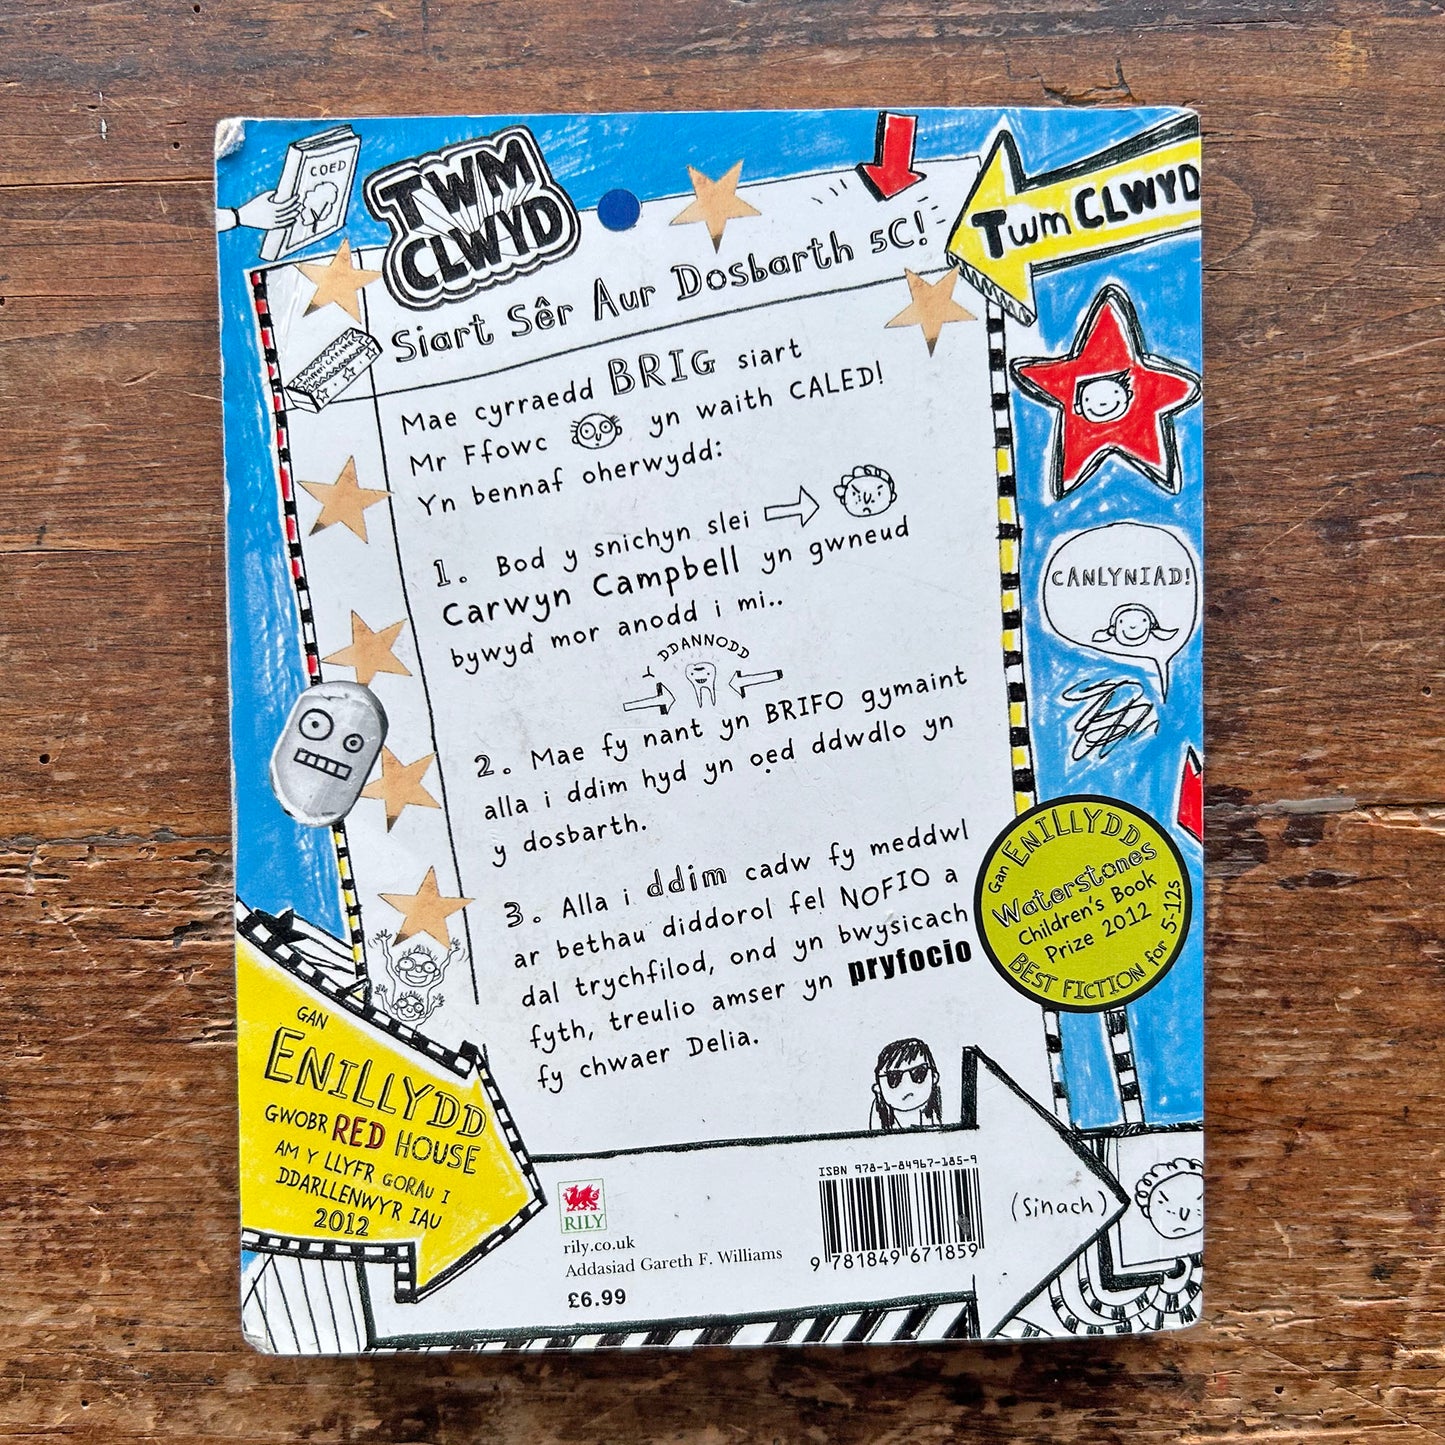 COED
TWM
CLWYD
Siart Sêr Aur Dosbarth 5C!
Twm CLWYD
Mae cyrraedd BRIG siart
Mr Ffowc yn waith CALED!
Yn bennaf oherwydd:
1. Bod y snichyn slei
Carwyn Campbell yn gwneud
bywyd mor anodd i mi..
CANLYNIAD!
Y DDANNODD
2. Mae fy nant yn BRIFO gymaint
alla i ddim hyd yn oed ddwdlo yn
y dosbarth.
3. Alla i ddim cadw fy meddwl
ar bethau diddorol fel NOFIO a
dal trychfilod, ond yn bwysicach
fyth, treulio amser yn pryfocio
fy chwaer Delia.
Gan ENILLYDD
Waterstones
Children's Book
Prize 2012
BEST FICTION for 5-12s
GAN
ENILLYDD
GWOBR RED HOUSE
AM Y LLYFR GORAU I
DDARLLENWYR IAU
2012
RILY
rily.co.uk
Addasiad Gareth F. Williams
£6.99
ISBN 978-1-84967-185-9
9 781849 671859
(Sinach)